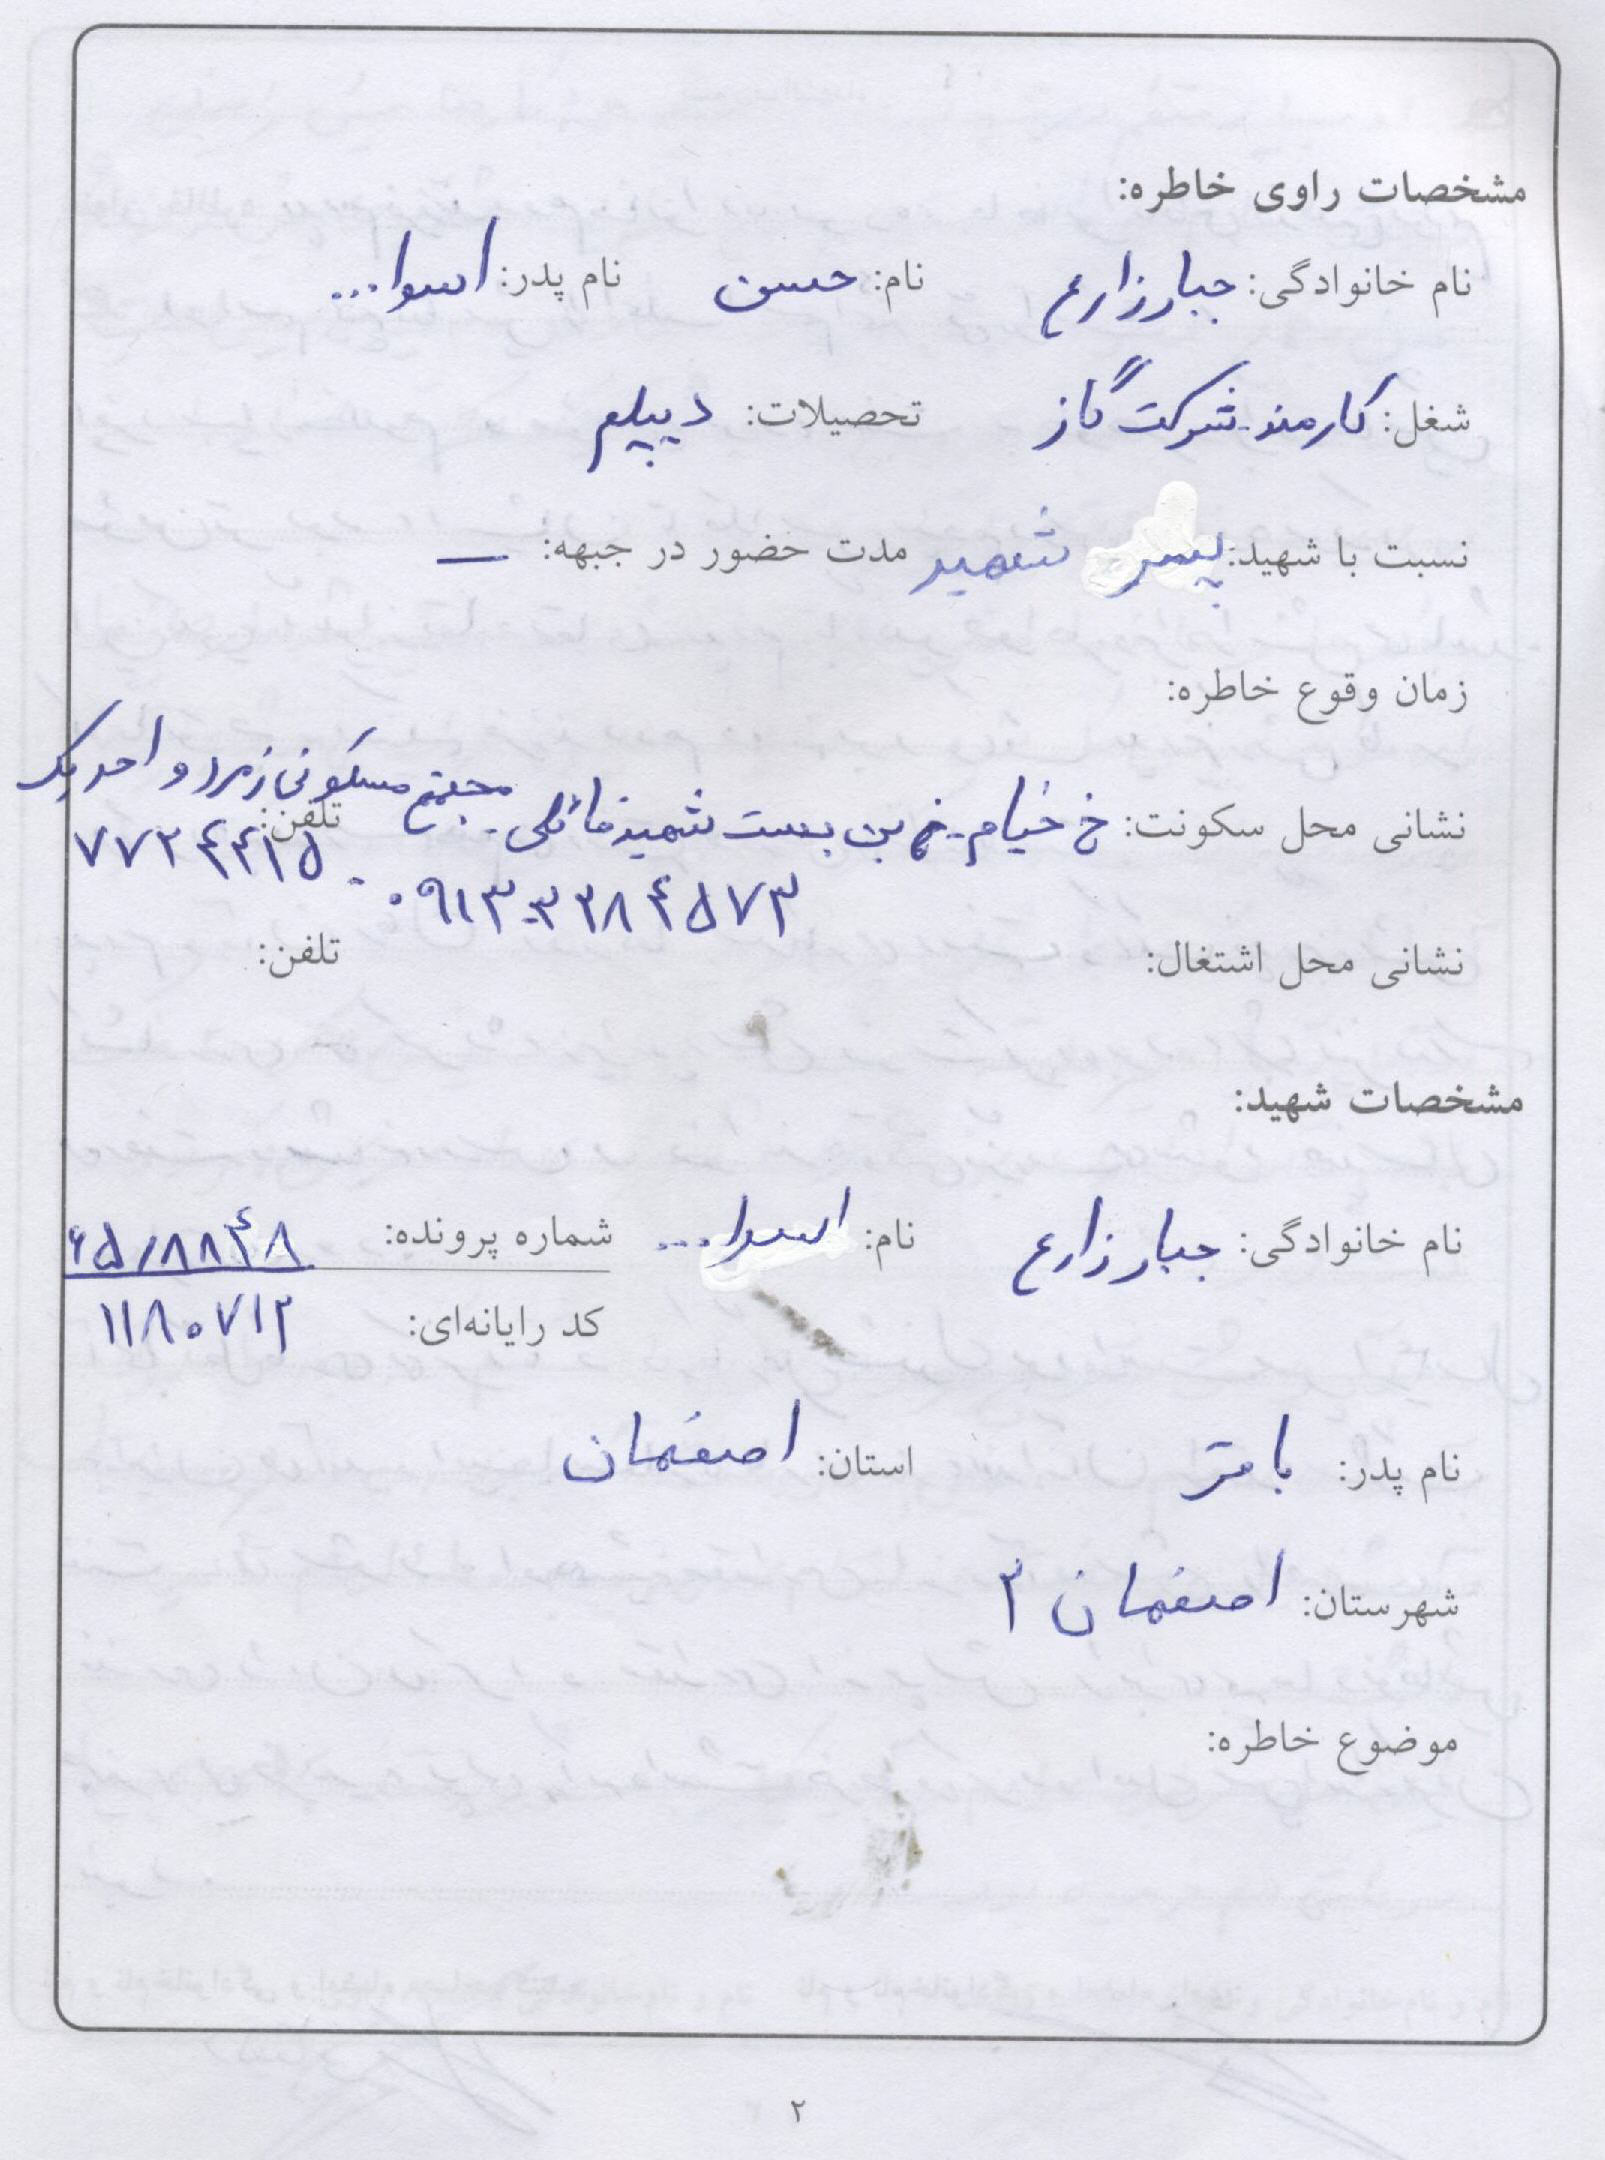 مشخصات راوی خاطره:
نام خانوادگی: جبار زارع نام: حسن نام پدر: اسدا...
شغل: کارمند شرکت گاز تحصیلات: دیپلم
نسبت با شهید: پسر شهید مدت حضور در جبهه: —
زمان وقوع خاطره:
نشانی محل سکونت: خ خیام - بن بست شهید - مجتمع مسکونی زمرد واحد یک تلفن: ۷۷۲۴۴۱۵
۰۹۱۳۰۳۲۸۴۵۷۳
نشانی محل اشتغال: تلفن:
مشخصات شهید:
نام خانوادگی: جبار زارع نام: اسدا... شماره پرونده: ۶۵/۸۸۴۸
کد رایانه‌ای: ۱۱۸۰۷۱۲
نام پدر: باقر استان: اصفهان
شهرستان: اصفهان ۲
موضوع خاطره:
۲